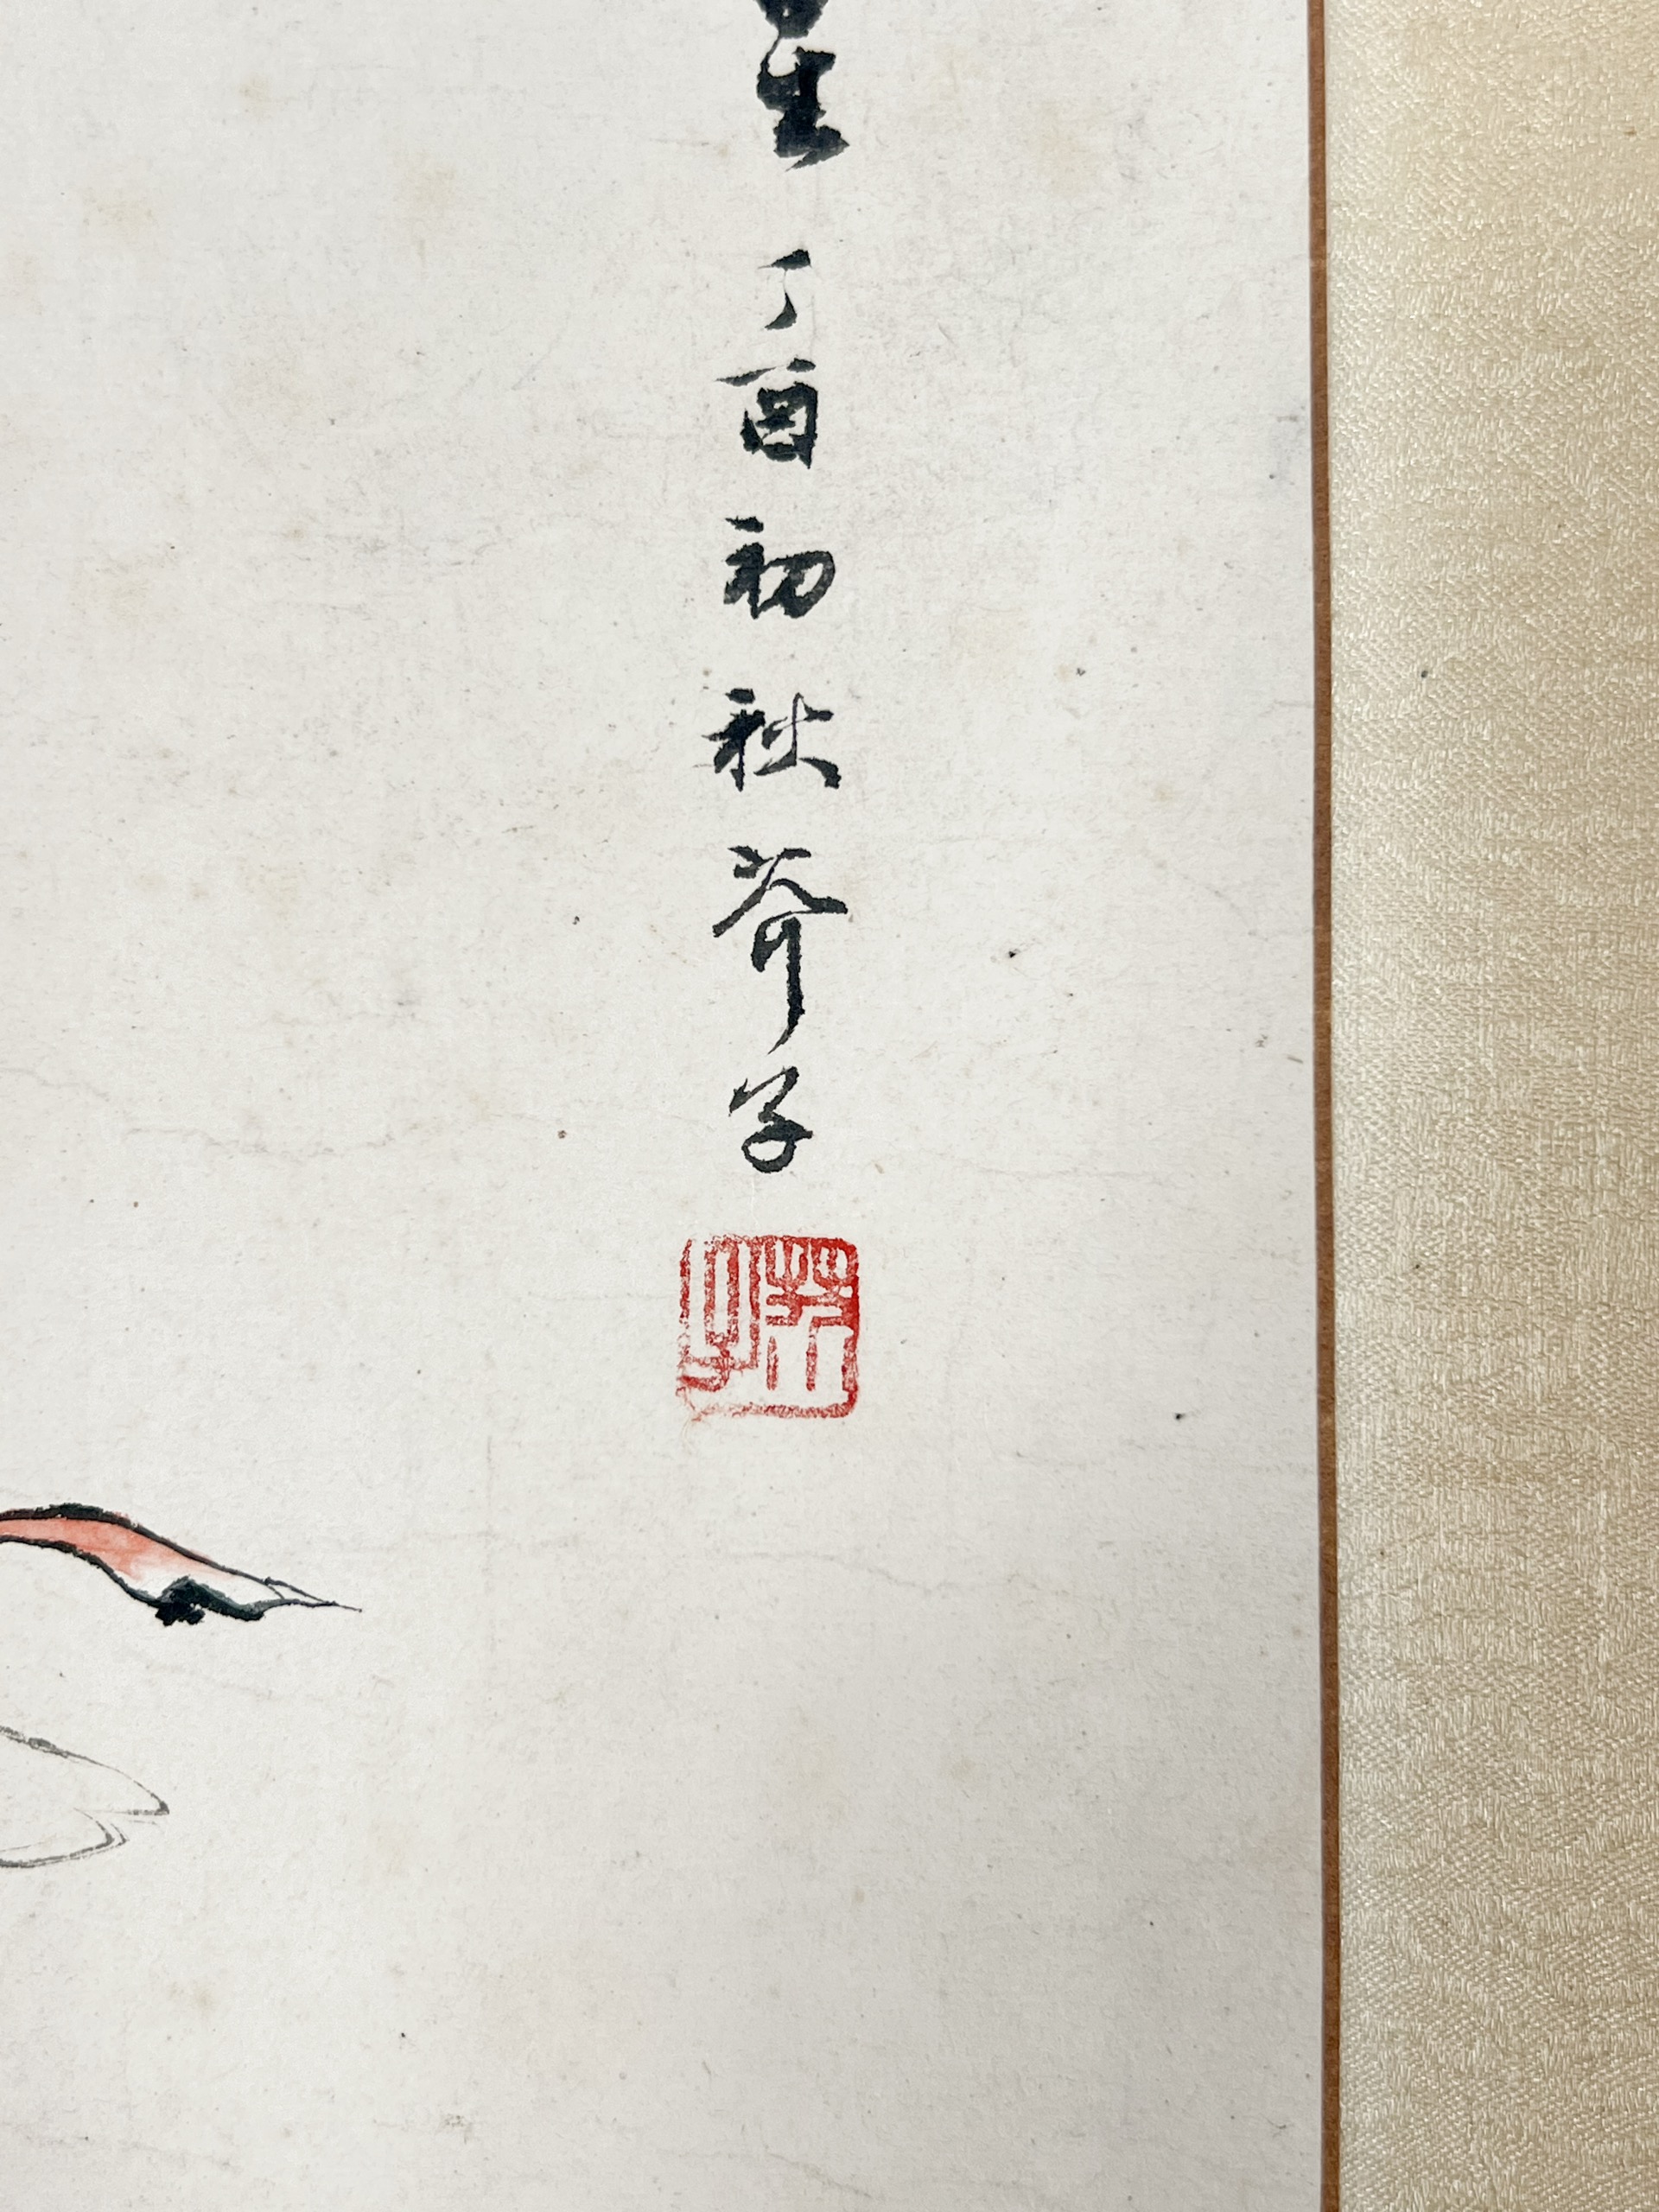 星 丁酉初秋芥子